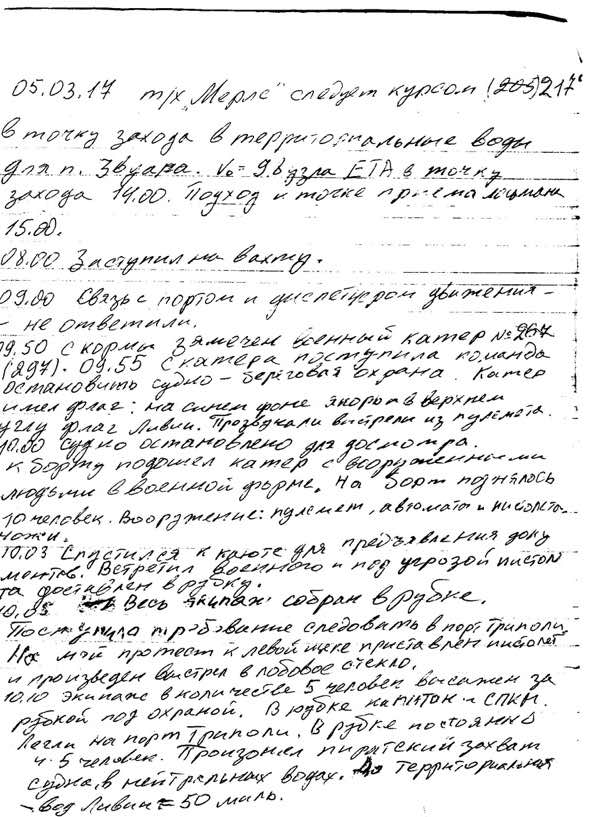 05.03.17 т/х „Мерле" следует курсом (205) 217°
в точку захода в территориальные воды
для п. Зуара. Vо= 9.6 узла ЕТА в точку
захода 14.00. Подход к точке приема лоцмана
15.00.
08.00 Заступил на вахту.
09.00 Связь с портом и диспетчером движения -
- не ответили.
09.50 С кормы замечен военный катер № 267
(297). 09.55 С катера поступила команда
остановить судно – береговая охрана. Катер
имел флаг: на синем фоне якорь в верхнем
углу флаг Ливии. Прозвучали выстрелы из пулемета.
10.00 Судно остановлено для досмотра.
к борту подошел катер с вооруженными
людьми в военной форме. На борт поднялось
10 человек. Вооружение: пулемет, автоматы и пистолеты
ножи.
10.03 Спустился к каюте для предъявления доку
ментов. Встретил военного и под угрозой пистоле
та доставлен в рубку.
10.05 Весь экипаж собран в рубке.
Поступило требование следовать в порт Триполи.
На мой протест к левой щеке приставлен пистолет
и произведен выстрел в лобовое стекло.
10.10 экипаж в количестве 5 человек высажен за
рубкой под охраной. В рубке капитан и СПКМ.
Легли на порт Триполи. В рубке постоянно
4-5 человек. Произошел пиратский захват
судна в нейтральных водах. До территориальных
- вод Ливии = 50 миль.